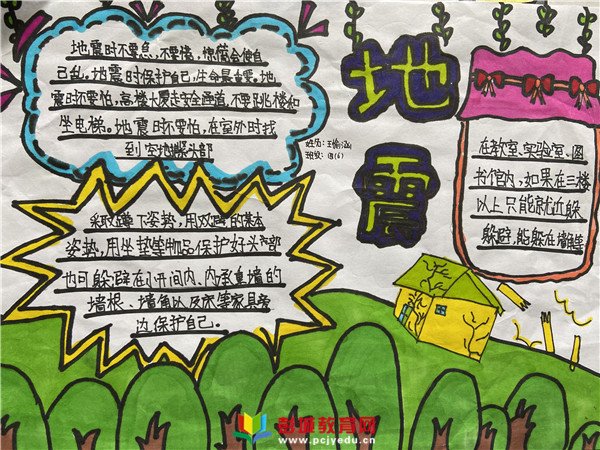 地震时不要急，不要慌，惊慌会使自
己乱。地震时保护自己，生命最重要。地
震时不要怕，高楼火覆走安全通道，不要跳楼和
坐电梯。地震时不要怕，在室外时找
到空地蹲头部
地
震
姓名：王
班级：(6)
在教室、实验室、图
书馆内，如果在三楼
以上只能就近躲
躲避，能躲在墙角等
采取蹲下姿势，用双臂的基本
姿势，用坐垫等物品保护好头部
也可躲避在小开间内、内承重墙的
墙根、墙角以及床等家具旁
边保护自己。
彭城教育网
www.pcjyedu.cn